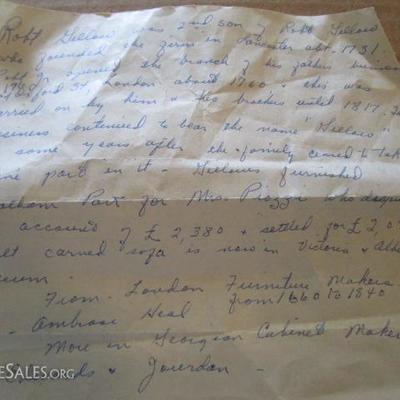 Robt Gillow was 2nd son of Robt Gillow
who founded the firm in Lancaster abt. 1731.
Robt opened the branch of his fathers business
London about 1760 & this was
carried on by him & his brothers until 1817. The
business continued to bear the name "Gillows"
some years after the family ceased to take
part in it - Gillows furnished
Park for Mrs. Piozzi who
account of £ 2,380 & settled for £ 2,0
carved sofa is now in Victoria & Albe
From - London Furniture Makers
from 1660 to 1840
- Ambrose Heal
More in Georgian Cabinet Maker
& Jourdan -
ESALES.ORG